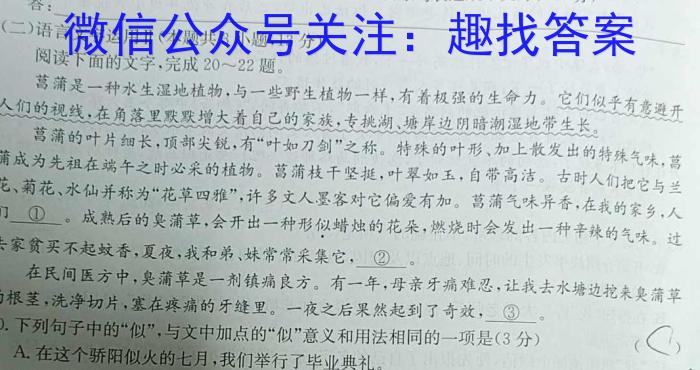 答:
微信公众号关注：趣找答案
(二)语言
阅读下面的文字,完成20～22题。
菖蒲是一种水生湿地植物,与一些野生植物一样,有着极强的生命力。它们似乎有意避开
人们的视线,在角落里默默增大着自己的家族,专挑湖、塘岸边阴暗潮湿地带生长。
菖蒲的叶片细长,顶部尖锐,有“叶如刀剑”之称。特殊的叶形、加上散发出的特殊气味,菖
蒲成为先祖在端午之时必采的植物。菖蒲枝干坚挺,叶翠如玉,自带高洁。古时人们把它与兰
花、菊花、水仙并称为“花草四雅”,许多文人墨客对它偏爱有加。菖蒲气味异香,在我的家乡,人
们 ① 。成熟后的臭蒲草,会开出一种形似蜡烛的花朵,燃烧时会发出一种辛辣的气味。过
去家贫买不起蚊香,夏夜,我和弟、妹常常采集它, ② 。
在民间医方中,臭蒲草是一剂镇痛良方。有一年,母亲牙痛难忍,让我去水塘边挖来臭蒲草
的根茎,洗净切片,塞在疼痛的牙缝里。一夜之后果然起到了奇效, ③ 。
0.下列句子中的“似”,与文中加点的“似”意义和用法相同的一项是(3分) ( C )
A.在这个骄阳似火的七月,我们举行了毕业典礼。